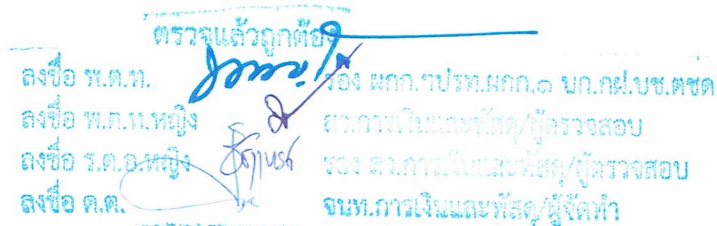 ตรวจแล้วถูกต้อง
ลงชื่อ พ.ต.ท. รอง ผกก.ฯปรท.ผกก.๑ บก.กฝ.บช.ตชด
ลงชื่อ พ.ต.ท.หญิง สว.การเงินและพัสดุ/ผู้ตรวจสอบ
ลงชื่อ ร.ต.อ.หญิง รอง สว.การเงินและพัสดุ/ผู้ตรวจสอบ
ลงชื่อ ด.ต. จนท.การเงินและพัสดุ/ผู้จัดทำ